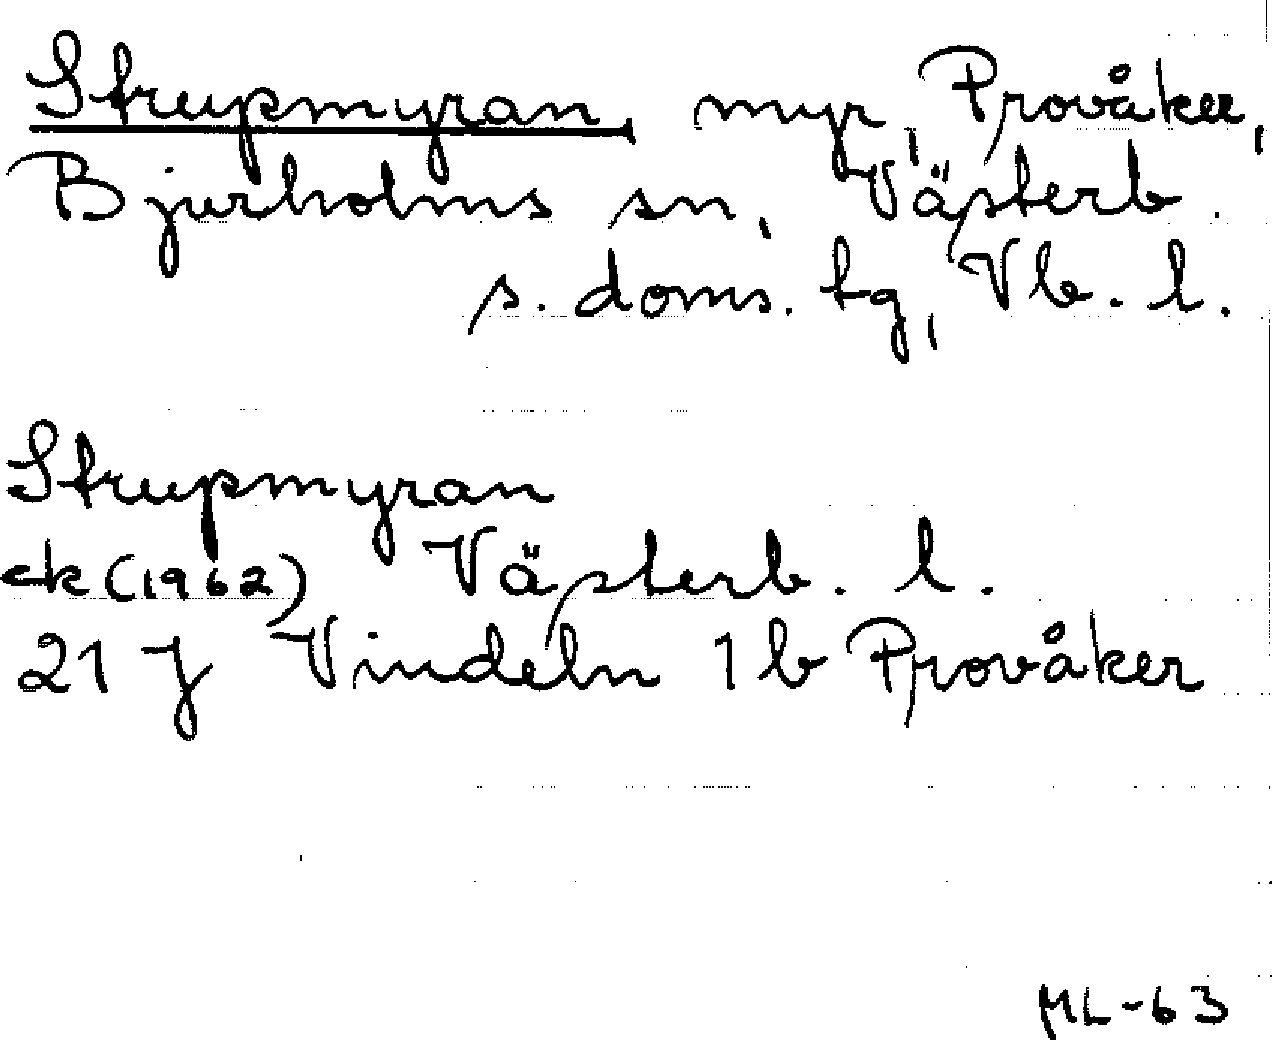 Strupmyran, myr, Provåker,
Bjurholms sn, Västerb.
s. doms. tg, Vb. l.
Strupmyran
ek (1962) Västerb. l.
21 J Vindeln 1 b Provåker
ML-63